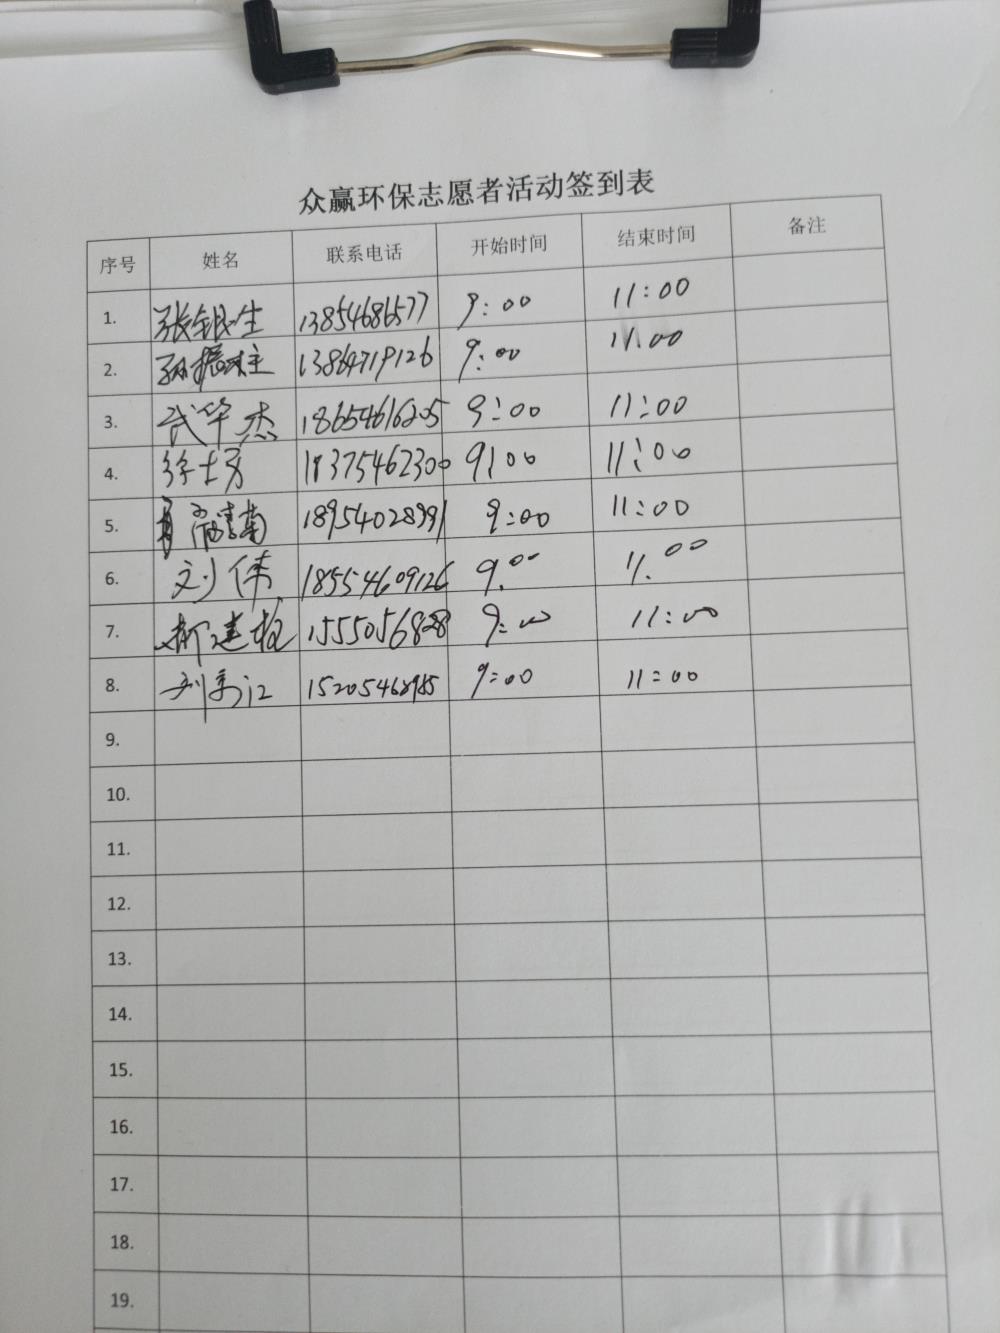 众赢环保志愿者活动签到表
序号 姓名 联系电话 开始时间 结束时间 备注
1. 张银生 13854686577 9:00 11:00
2. 孙振 13864719126 9:00 11:00
3. 武华杰 18654616205 9:00 11:00
4. 徐士芳 18375462300 9:00 11:00
5. 18954028991 9:00 11:00
6. 刘伟 18554609126 9:00 11:00
7. 建 1555056828 9:00 11:00
8. 刘 江 15205468985 9:00 11:00
9.
10.
11.
12.
13.
14.
15.
16.
17.
18.
19.